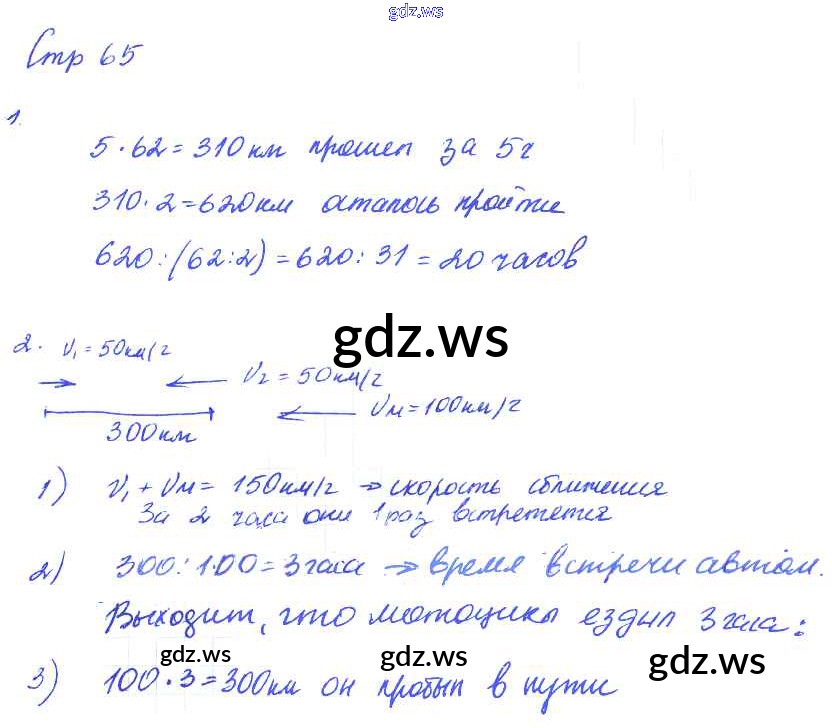 gdz.ws
Стр 65
1.
5·62=310км прошел за 5ч
310·2=620км осталось пройти
620:(62:2)=620:31=20 часов
gdz.ws
2. V₁=50км/ч
V₂=50км/ч
Vм=100км/ч
300км
1) V₁+Vм=150км/ч → скорость сближения
За 2 часа они 1 раз встретется
2) 300:100=3 часа → время встречи автом.
Выходит, что мотоцикл ездил 3 часа:
gdz.ws gdz.ws gdz.ws
3) 100·3=300км он пробыл в пути